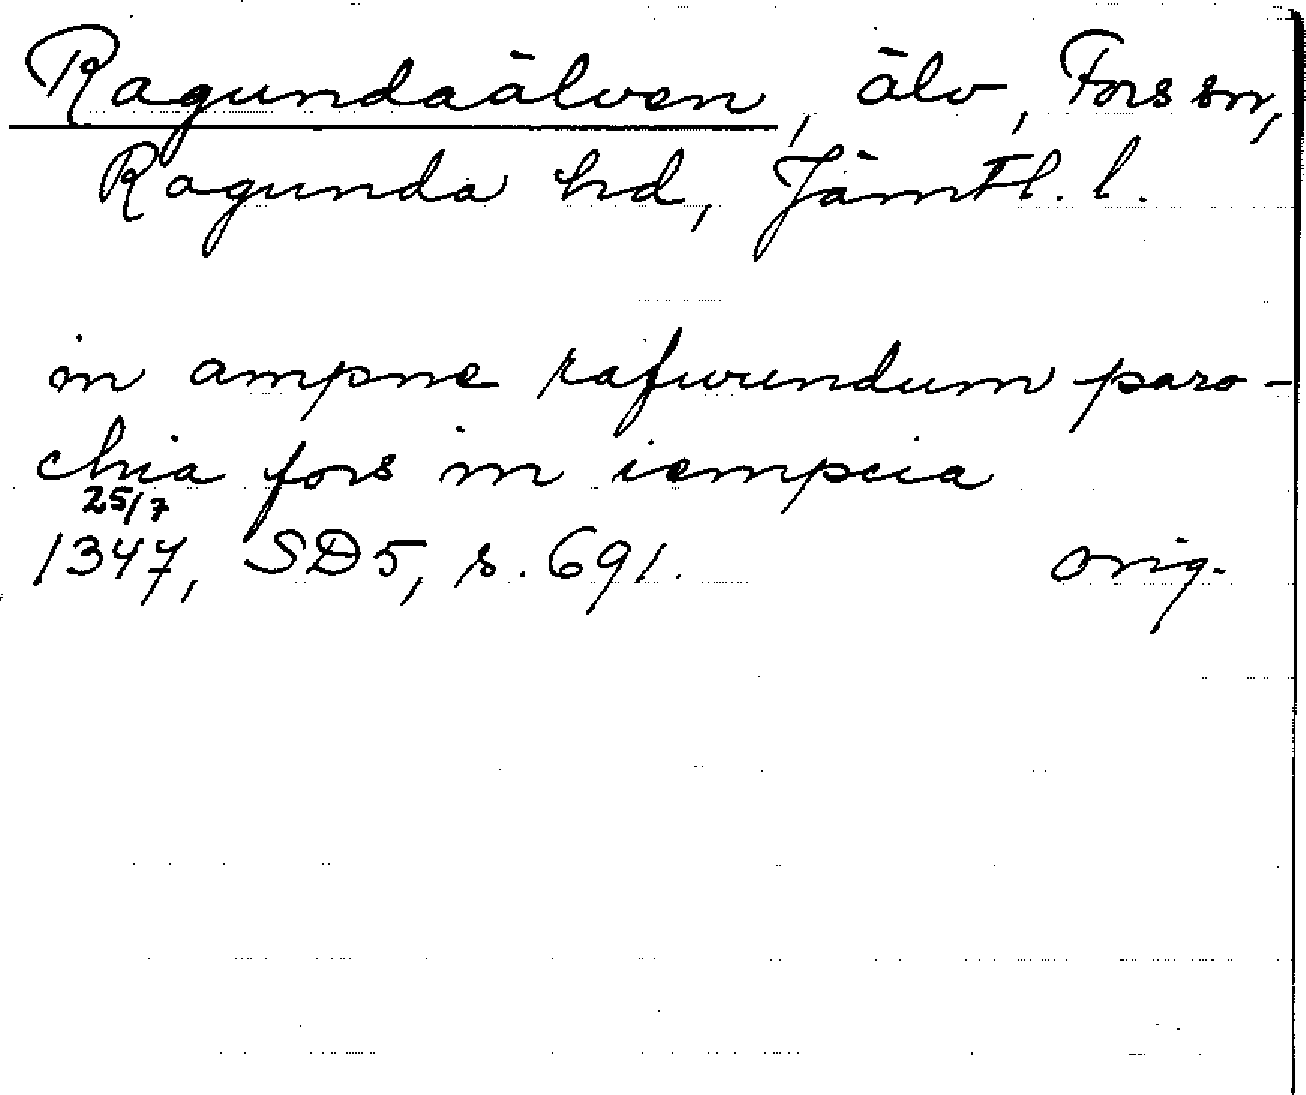 Ragundaälven, älv, Fors sn,
Ragunda hd, Jämtl. l.
in ampne rafwundum paro-
chia fors in iempcia
25/7
1347, SD5, s. 691. orig.